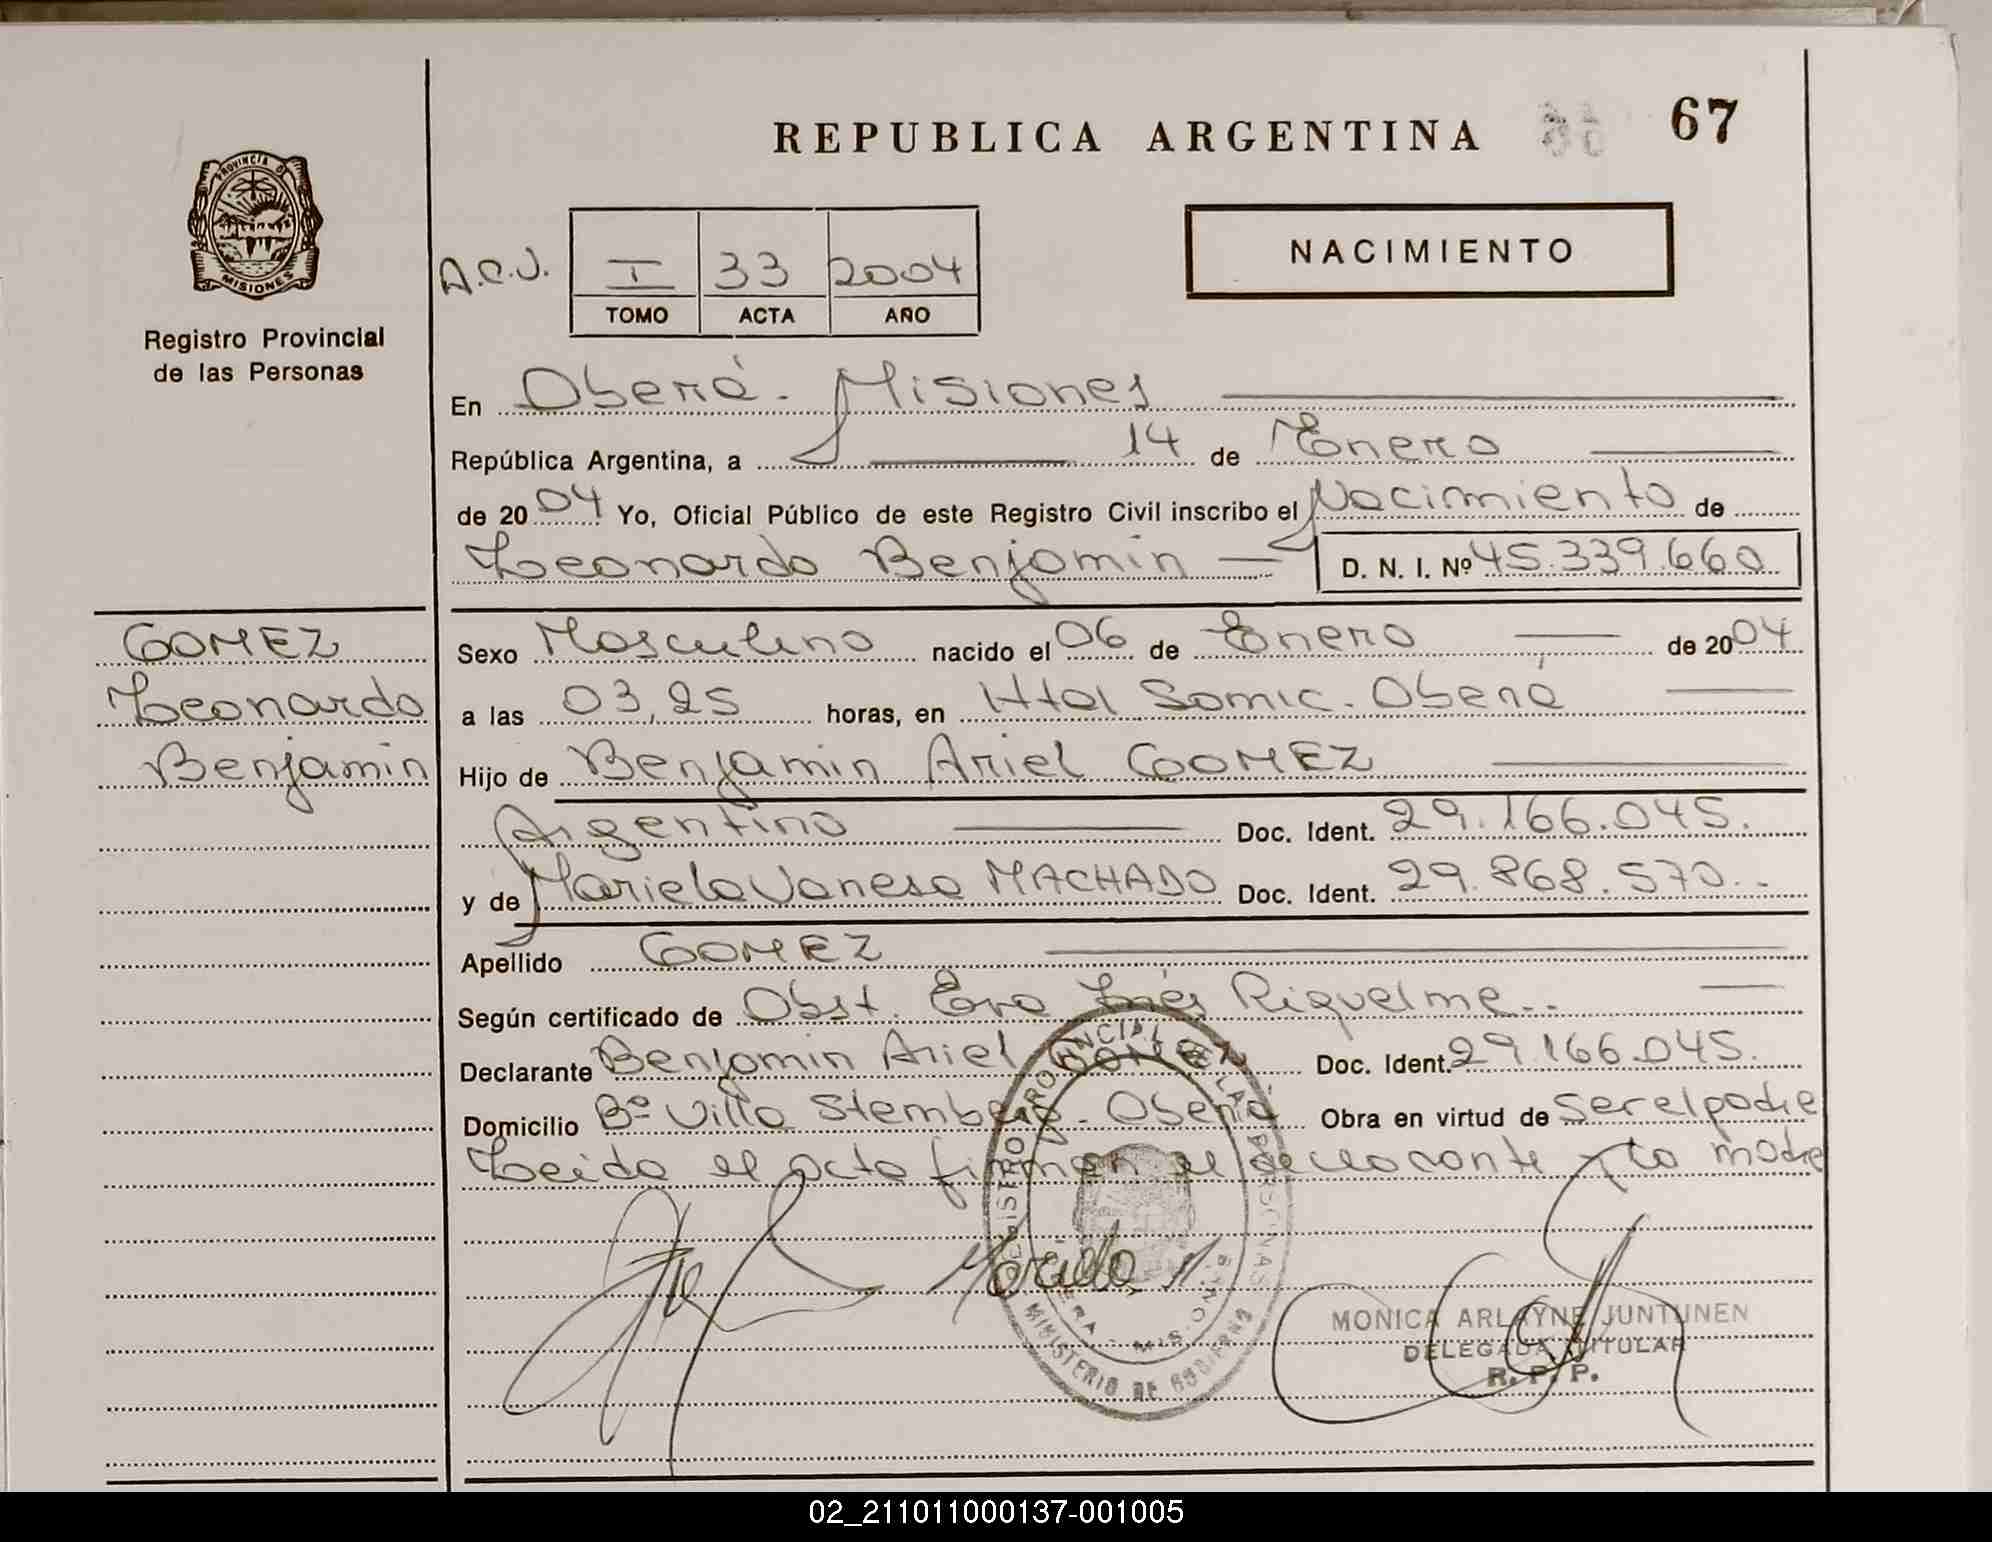 REPUBLICA ARGENTINA 67
PROVINCIA DE MISIONES
Registro Provincial
de las Personas
NACIMIENTO
A.C.J. I 33 2004
TOMO ACTA AÑO
En Oberá - Misiones
República Argentina, a 14 de Enero
de 2004 Yo, Oficial Público de este Registro Civil inscribo el Nacimiento de
Leonardo Benjamin D. N. I. Nº 45.339.660
GOMEZ
Leonardo
Benjamin
Sexo Masculino nacido el 06 de Enero de 2004
a las 03,25 horas, en Htal Samic. Oberá
Hijo de Benjamin Ariel GOMEZ
Argentino Doc. Ident. 29.166.045.
y de Mariela Vanesa MACHADO Doc. Ident. 29.868.570..
Apellido GOMEZ
Según certificado de Obst. Eva Inés Riquelme..
Declarante Benjamin Ariel GOMEZ Doc. Ident. 29.166.045.
Domicilio Bº Villa Stemberg - Oberá Obra en virtud de Ser el padre
Leida el acta firman el declarante y la madre
REGISTRO PROVINCIAL DE LAS PERSONAS
MINISTERIO DE GOBIERNO
MONICA ARLAYNE JUNTUNEN
DELEGADA TITULAR
R. P. P.
02_211011000137-001005